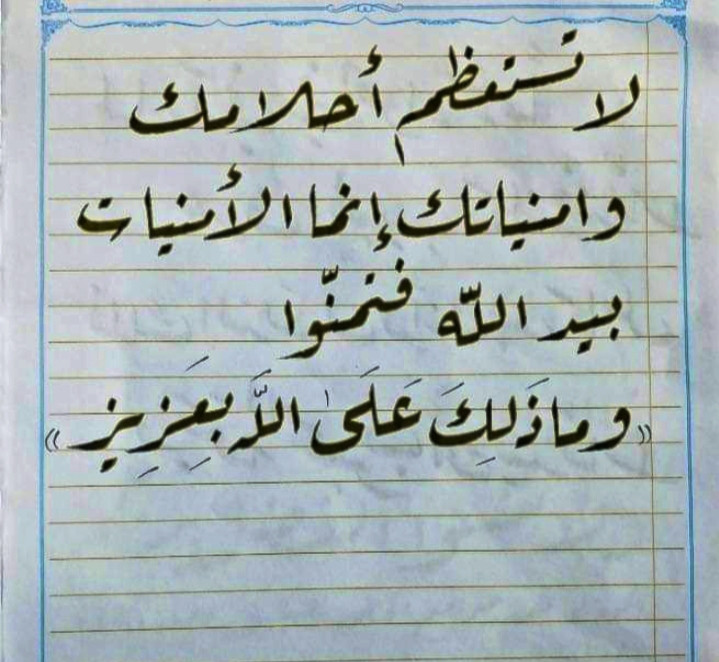 لا تستعظم أحلامك
وامنياتك إنما الأمنيات
بيد اللّه فتمنّوا
«وما ذَلِكَ عَلَىٰ اللَّه بِعَزِيزٍ»